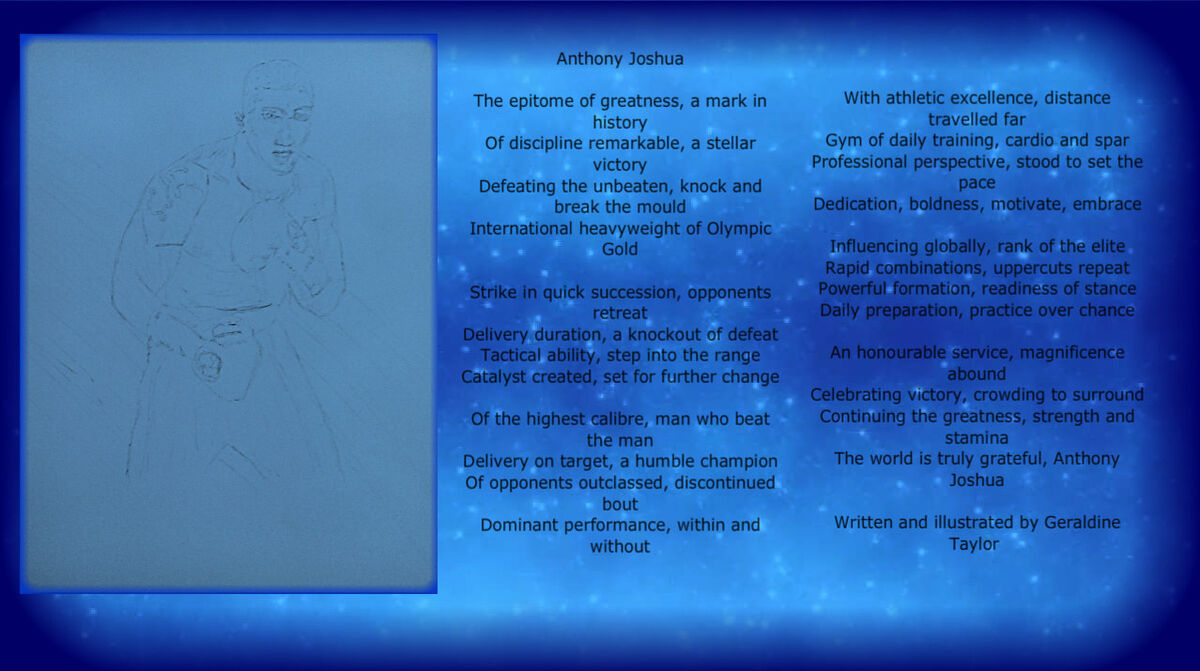 Anthony Joshua
The epitome of greatness, a mark in
history
Of discipline remarkable, a stellar
victory
Defeating the unbeaten, knock and
break the mould
International heavyweight of Olympic
Gold
Strike in quick succession, opponents
retreat
Delivery duration, a knockout of defeat
Tactical ability, step into the range
Catalyst created, set for further change
Of the highest calibre, man who beat
the man
Delivery on target, a humble champion
Of opponents outclassed, discontinued
bout
Dominant performance, within and
without
With athletic excellence, distance
travelled far
Gym of daily training, cardio and spar
Professional perspective, stood to set the
pace
Dedication, boldness, motivate, embrace
Influencing globally, rank of the elite
Rapid combinations, uppercuts repeat
Powerful formation, readiness of stance
Daily preparation, practice over chance
An honourable service, magnificence
abound
Celebrating victory, crowding to surround
Continuing the greatness, strength and
stamina
The world is truly grateful, Anthony
Joshua
Written and illustrated by Geraldine
Taylor